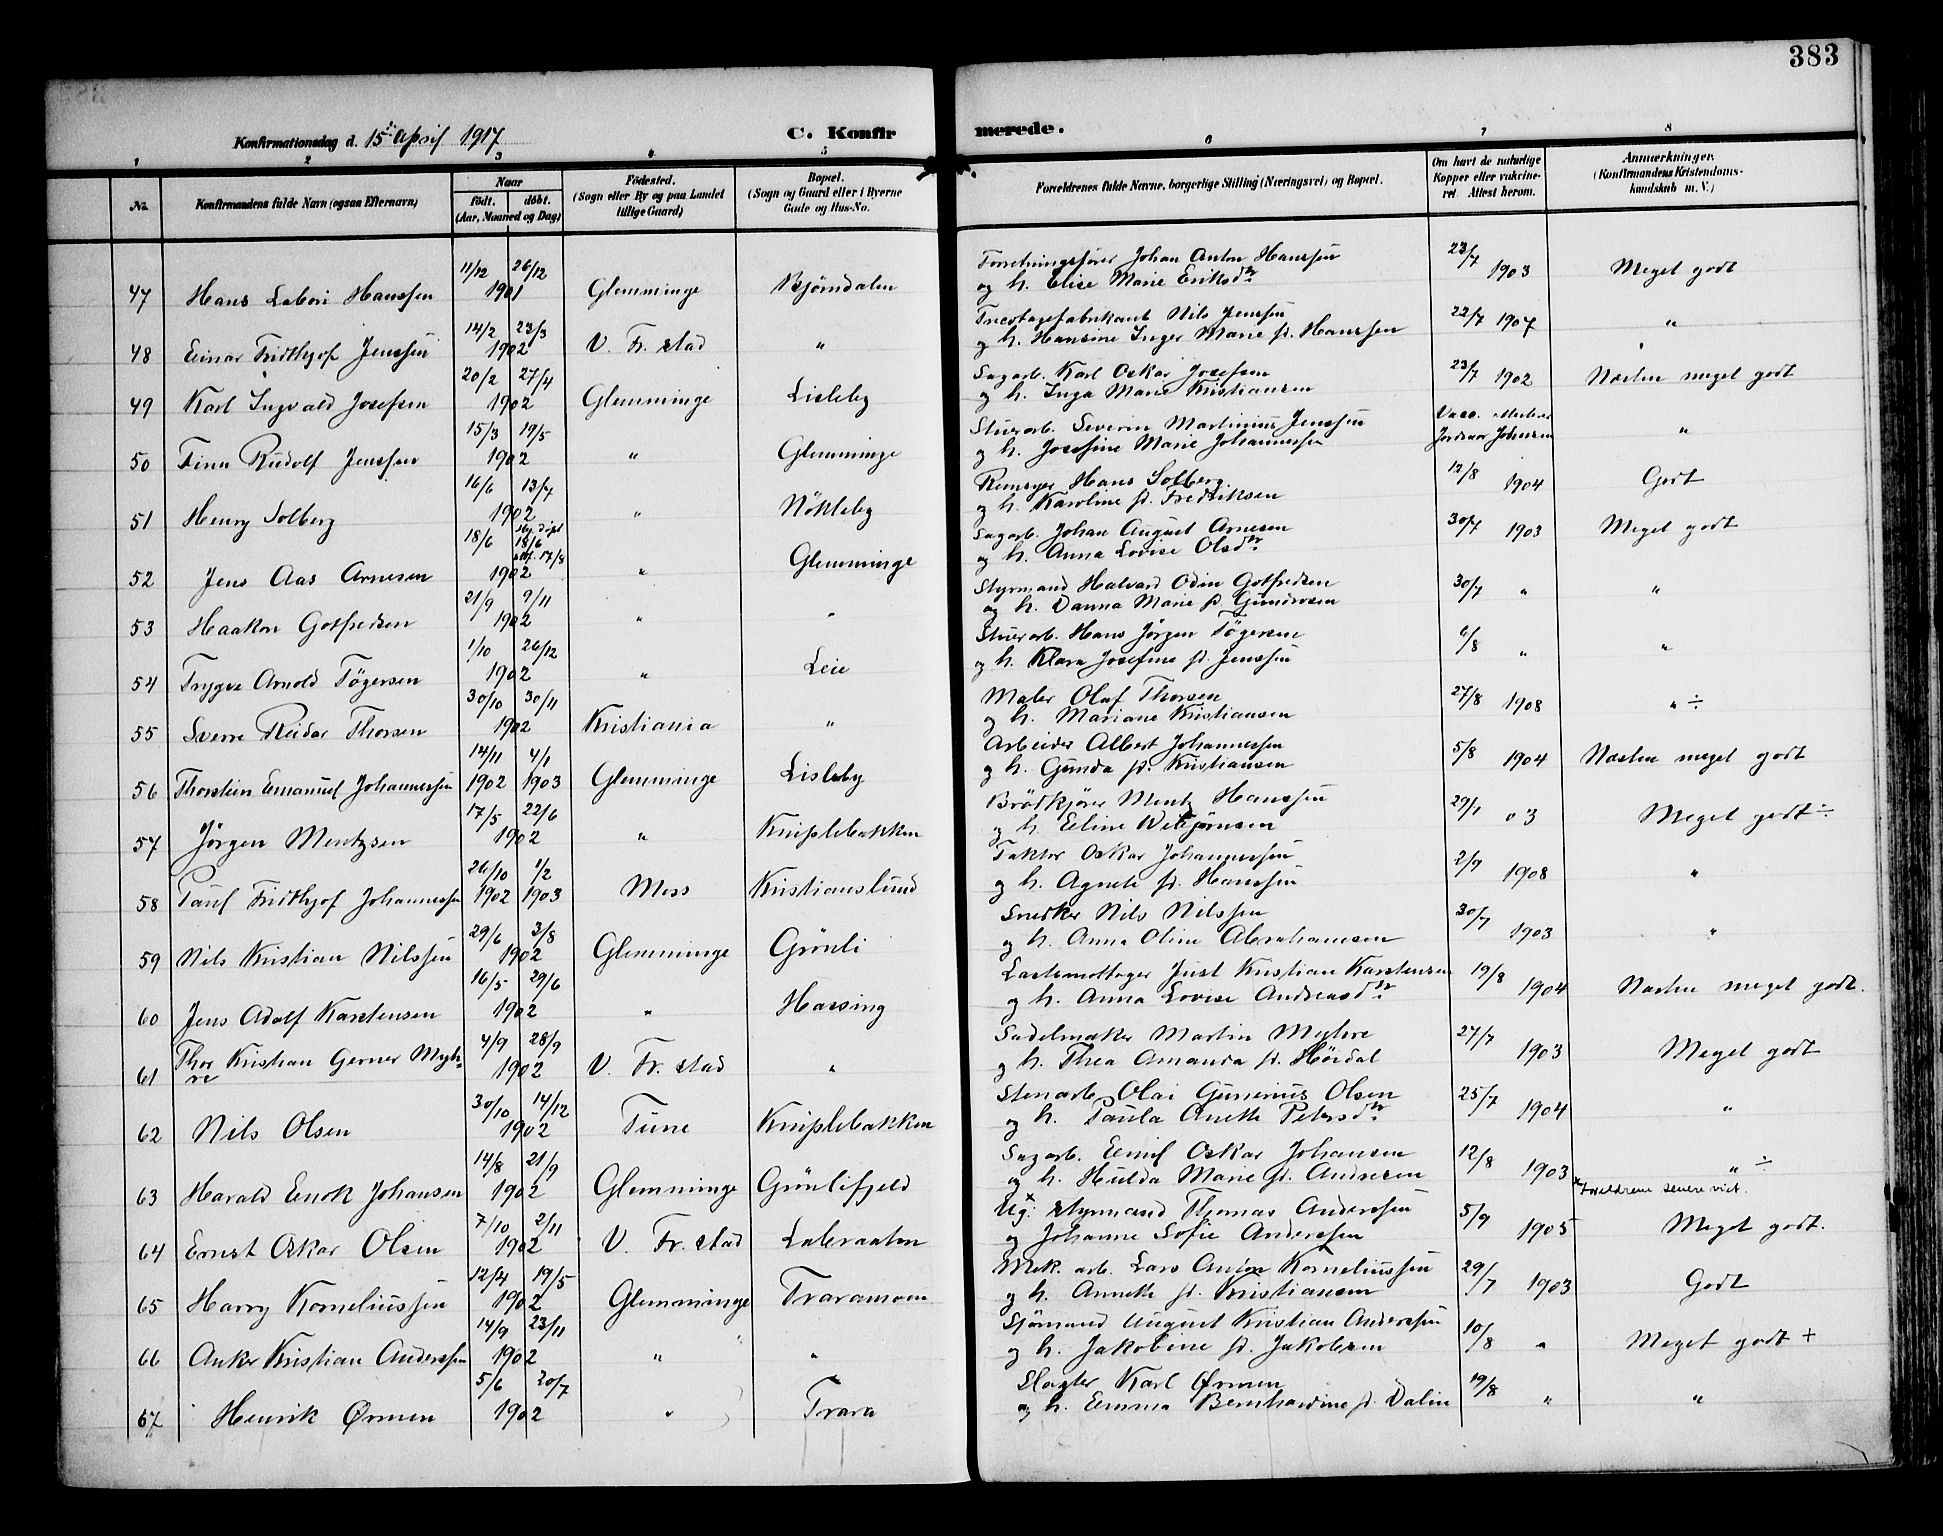 383
Konfirmationsdag d. 15de April 1917
C. Konfirmerede.
1 2 3 4 5 6 7 8
No. | Konfirmandens fulde Navn (ogsaa Efternavn) | Naar født. døbt. (Aar, Maaned og Dag) | Fødested. (Sogn eller By og paa Landet tillige Gaard) | Bopæl. (Sogn og Gaard eller i Byerne Gade og Hus-No. | Forældrenes fulde Navne, borgerlige Stilling (Næringsvei) og Bopæl. | Om havt de naturlige Kopper eller vakcineret. Attest herom. | Anmærkninger. (Konfirmandens Kristendomskundskab m. V.)
47 Hans Labori Hanssen 11/12 26/12 1901 Glemminge Bjørndalen Forretningsfører Johan Anton Hanssen og h. Elise Marie Eriksdtr 23/7 1903 Meget godt
48 Einar Fridthjof Jenssen 14/2 23/3 1902 V. Fr.stad " Tricotagefabrikant Nils Jenssen og h. Hansine Inger Marie f. Hanssen 22/7 1907 "
49 Karl Ingvald Josefsen 20/2 27/4 1902 Glemminge Lisleby Sagarb. Karl Oskar Josefsen og h. Inga Marie Kristiansen 23/7 1902 Næsten meget godt
50 Finn Rudolf Jenssen 15/3 19/5 1902 " Glemminge Stuerarb. Severin Martinius Jenssen og h. Josefine Marie Johannessen Vacc. Johnsen "
51 Henry Solberg 16/6 13/7 1902 " Nökleby Hans Solberg og h. Karoline f. Fredriksen 12/8 1904 Godt
52 Jens Aas Arnesen 18/6 hj. døpt 18/6 17/8 1902 " Glemminge Sagarb. Johan August Arnesen og h. Anna Lovise Olsdtr 30/7 1903 Meget godt
53 Haakon Gotfredsen 21/9 9/11 1902 " " Styrmand Halvard Odin Gotfredsen og h. Danna Marie f. Gundersen 30/7 " "
54 Trygve Arnold Tögersen 1/10 26/12 1902 " Leie Stuerarb. Hans Jörgen Tögersen og h. Klara Josefine f. Jenssen 6/8 " "
55 Sverre Reidar Thorsen 30/10 30/11 1902 Kristiania " Maler Olaf Thorsen og h. Mariane Kristiansen 27/8 1908 " ÷
56 Thorstein Emanuel Johannessen 14/11 1902 4/1 1903 Glemminge Lisleby Arbeider Albert Johannessen og h. Gunda f. Kristiansen 5/8 1904 Næsten meget godt
57 Jörgen Mentzsen 17/5 22/6 1902 " Kniplebakken Brödkjörer Mentz Hanssen og h. Eline 29/7 03 Meget godt ÷
58 Paul Fridthjof Johannessen 26/10 1902 1/2 1903 Moss Kristianslund Faktor Oskar Johannessen og h. Agnete f. Hanssen 2/9 1908 "
59 Nils Kristian Nilssen 29/6 3/8 1902 Glemminge Grönli Snedker Nils Nilssen og h. Anna Oline Abrahamsen 30/7 1903 "
60 Jens Adolf Karstensen 16/5 29/6 1902 " Hassing Lastemottager Just Kristian Karstensen og h. Anna Lovise Andreasdtr 19/8 1904 Næsten meget godt.
61 Thor Kristian Gerner Myhre 4/9 28/9 1902 V. Fr.stad " Sadelmaker Martin Myhre og h. Thea Amanda f. Höidal 27/7 1903 Meget godt
62 Nils Olsen 30/10 14/12 1902 Tune Kniplebakken Stenarb. Olai Gunerius Olsen og h. Paula Anette Petersdtr 25/7 1904 "
63 Harald Enok Johansen 14/8 21/9 1902 Glemminge Grönlifjeld Sagarb. Emil Oskar Johansen og h. Hulda Marie f. Andersen 12/8 1903 " ÷
x Forældrene senere viet.
64 Ernst Oskar Olsen 7/10 2/11 1902 V. Fr.stad Labraaten Ug.x Styrmand Thomas Anderssen og Johanne Sofie Anderssen 5/9 1905 Meget godt.
65 Harry Korneliussen 12/4 19/5 1902 Glemminge Traramoen Mek. arb. Lars Anton Korneliussen og h. Annette f. Kristiansen 29/7 1903 Godt
66 Anker Kristian Anderssen 14/9 23/11 1902 " " Sjömand August Kristian Anderssen og h. Jakobine f. Jakobsen 10/8 " Meget godt +
67 Henrik Ørmen 5/6 20/7 1902 " Trara Slagter Karl Ørmen og h. Emma Bernhardine f. Dalin 19/8 " "